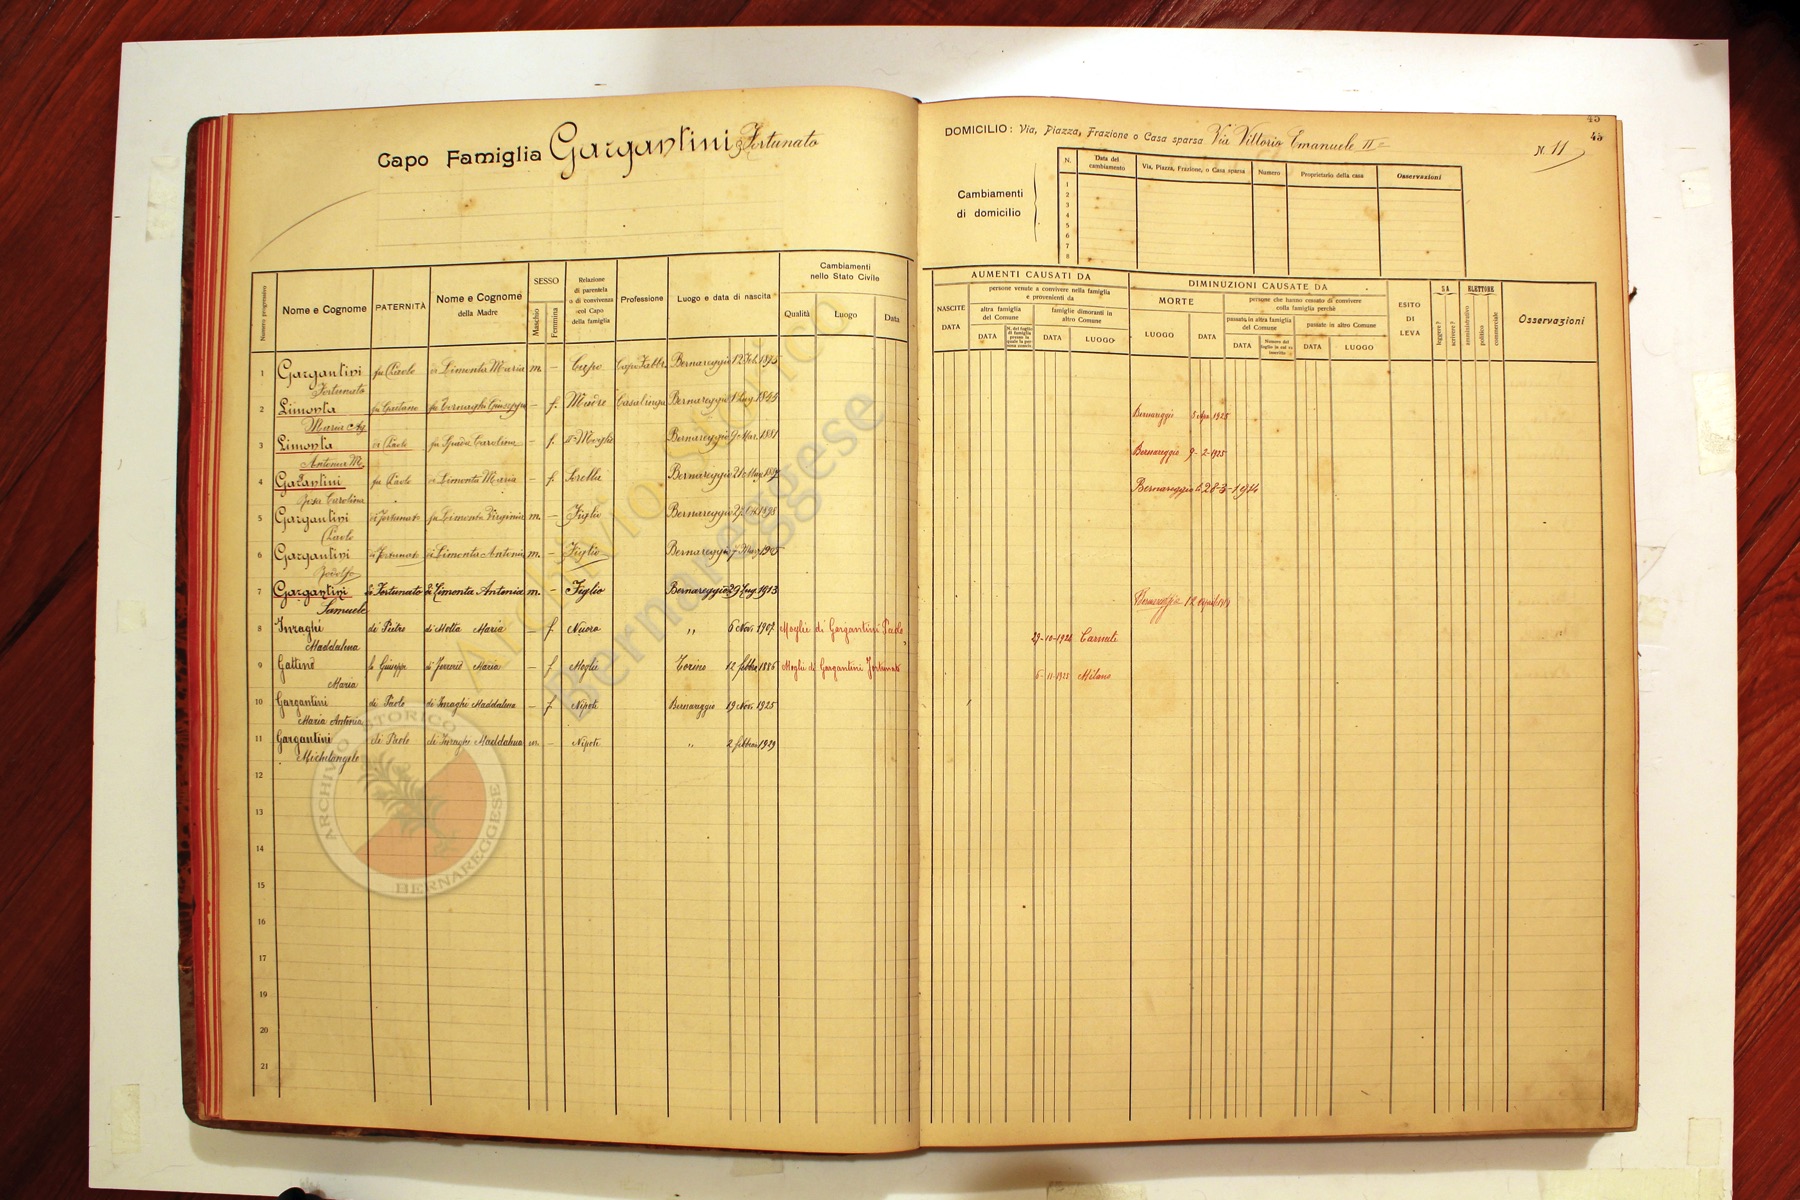 Capo Famiglia Gargantini Fortunato
DOMICILIO: Via, Piazza, Frazione o Casa sparsa Via Vittorio Emanuele II
N. 11
45
45
Cambiamenti
di domicilio
N.
Data del
cambiamento
Via, Piazza, Frazione, o Casa sparsa
Numero
Proprietario della casa
Osservazioni
1
2
3
4
5
6
7
8
Numero progressivo
Nome e Cognome
PATERNITÀ
Nome e Cognome
della Madre
SESSO
Maschio
Femmina
Relazione
di parentela
o di convivenza
col Capo
della famiglia
Professione
Luogo e data di nascita
Cambiamenti
nello Stato Civile
Qualità
Luogo
Data
AUMENTI CAUSATI DA
NASCITE
DATA
persone venute a convivere nella famiglia
e provenienti da
altra famiglia
del Comune
famiglie dimoranti in
altro Comune
DATA
N. del foglio
di famiglia
DATA
LUOGO
DIMINUZIONI CAUSATE DA
MORTE
LUOGO
DATA
persone che hanno cessato di convivere
colla famiglia perchè
passate in altra famiglia
del Comune
passate in altro Comune
DATA
DATA
LUOGO
ESITO
DI
LEVA
SA
leggere?
scrivere?
ELETTORE
amministrativo
politico
commerciale
Osservazioni
1 Gargantini fu Paolo di Limonta Maria m. – Capo Capo Fabbr. Bernareggio
Fortunato
2 Limonta fu Gaetano – f. Madre Casalinga Bernareggio 1845 Bernareggio 1925
Maria
3 Limonta di Paolo fu Spada Carolina – f. Moglie Bernareggio 9 Mar. 1881 Bernareggio 9-2-1925
Antonia M.
4 fu Paolo di Limonta Maria – f. Sorella Bernareggio Bernareggio
Carolina
5 Gargantini di Fortunato fu Limonta Virginia m. – Figlio Bernareggio 1898
Paolo
6 Gargantini di Fortunato di Limonta Antonia m. – Figlio Bernareggio
Rodolfo
7 Gargantini Fortunato di Limonta Antonia m. – Figlio Bernareggio 29 Lug. 1913 Bernareggio 12
Samuele
8 di Pietro di Motta Maria – f. Nuora „ 6 Nov. 1907 Moglie di Gargantini Paolo Carnate
Maddalena
9 Giuseppe Maria – f Moglie Torino 12 febbr. 1886 Moglie di Gargantini Fortunato Milano
Maria
10 Gargantini di Paolo Maddalena – f. Nipote Bernareggio 19 Nov. 1925
Maria Antonia
11 Gargantini di Paolo Maddalena m. – Nipote „ 2 febbraio 1929
Michelangelo
12
13
14
15
16
17
18
19
20
21
Archivio Storico
Bernareggese
ARCHIVIO STORICO
BERNAREGGESE